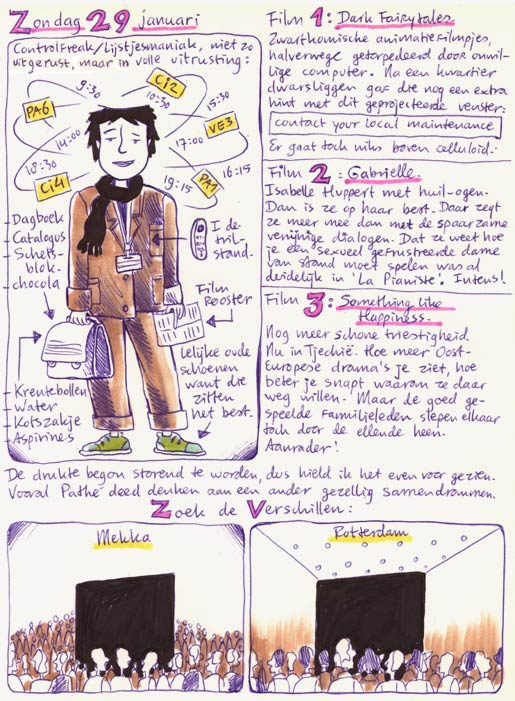 Zondag 29 januari
Controlfreak/Lijstjesmaniak, niet zo
uitgerust, maar in volle uitrusting:
Ci2
9:30
10:30
15:30
PA6
VE3
14:00
17:00
18:30
16:15
Ci4
19:15
PA1
Dagboek
Catalogus
Schets-
blok
chocola
I de
tril-
stand.
Film
Rooster
Lelijke oude
schoenen
want die
zitten
het best.
Krentebollen
Water
Kotszakje
Aspirines
Film 1: Dark Fairytales
Zwartkomische animatiefilmpjes,
halverwege getorpedeerd door onwil-
lige computer. Na een kwartier
dwarsliggen gaf die nog een extra
hint met dit geprojecteerde venster:
contact your local maintenance
Er gaat toch niks boven celluloid.
Film 2: Gabrielle
Isabelle Huppert met huil-ogen.
Dan is ze op haar best. Daar zegt
ze meer mee dan met de spaarzame
venijnige dialogen. Dat ze weet hoe
je een sexueel gefrustreerde dame
van stand moet spelen was al
duidelijk in 'La Pianiste'. Intens!
Film 3: Something like
Happiness.
Nog meer schone triestigheid.
Nu in Tjechië. Hoe meer Oost-
Europese drama's je ziet, hoe
beter je snapt waarom ze daar
weg willen. Maar de goed ge-
speelde familieleden slepen elkaar
toch door de ellende heen.
Aanrader!
De drukte begon storend te worden, dus hield ik het even voor gezien.
Vooral Pathé deed denken aan een ander gezellig samendrommen.
Zoek de Verschillen:
Mekka
Rotterdam